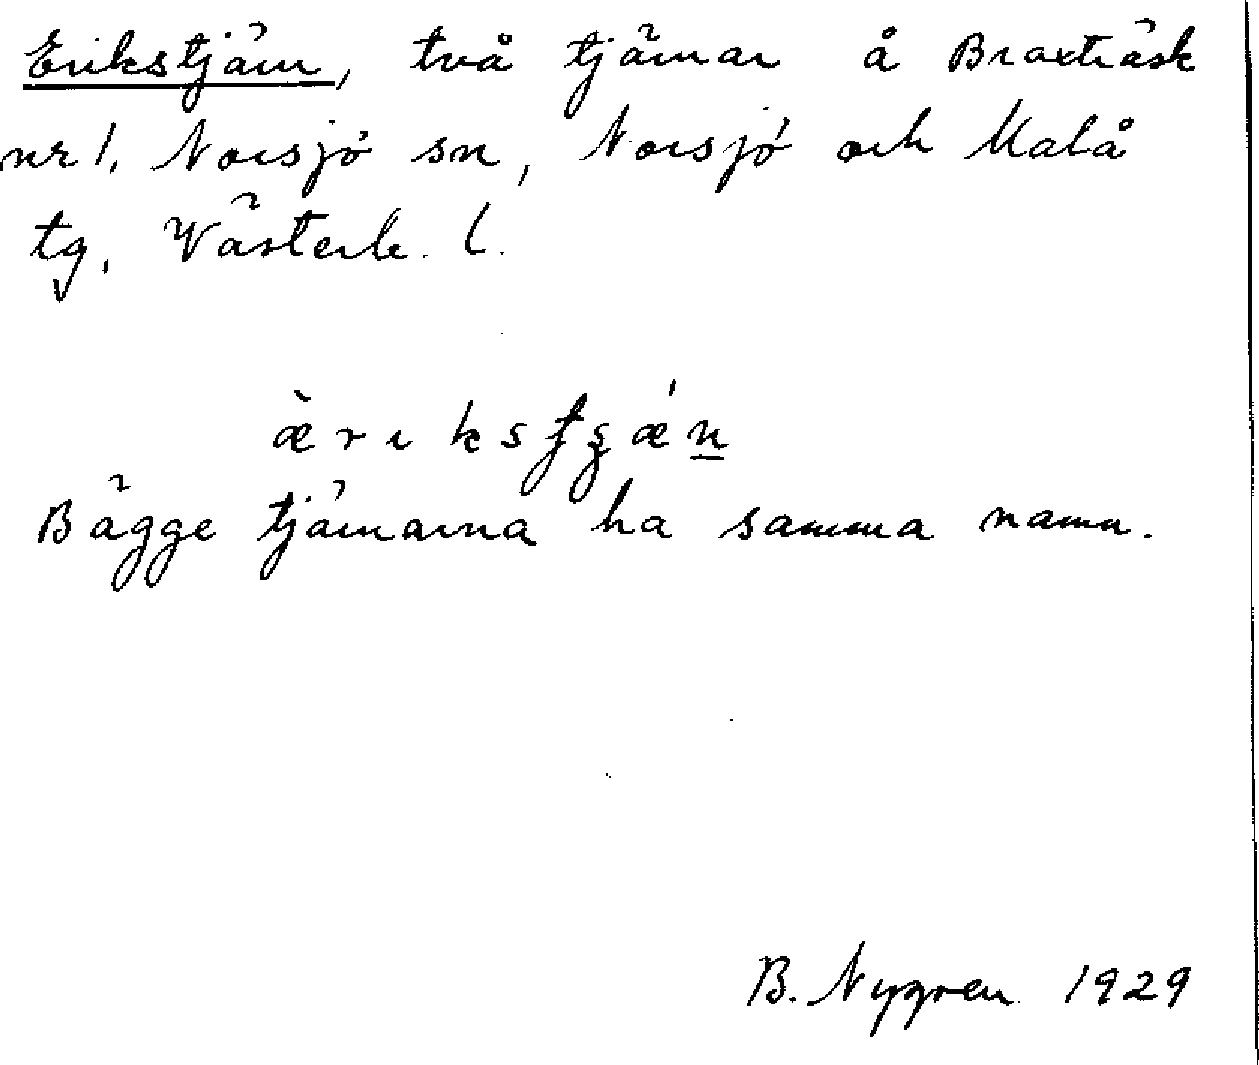 Erikstjärn, två tjärnar å Braxträsk
nr 1. Norsjö sn, Norsjö och Malå
tg, Västerb. l.
Bägge tjärnarna ha samma namn.
B. Nygren 1929